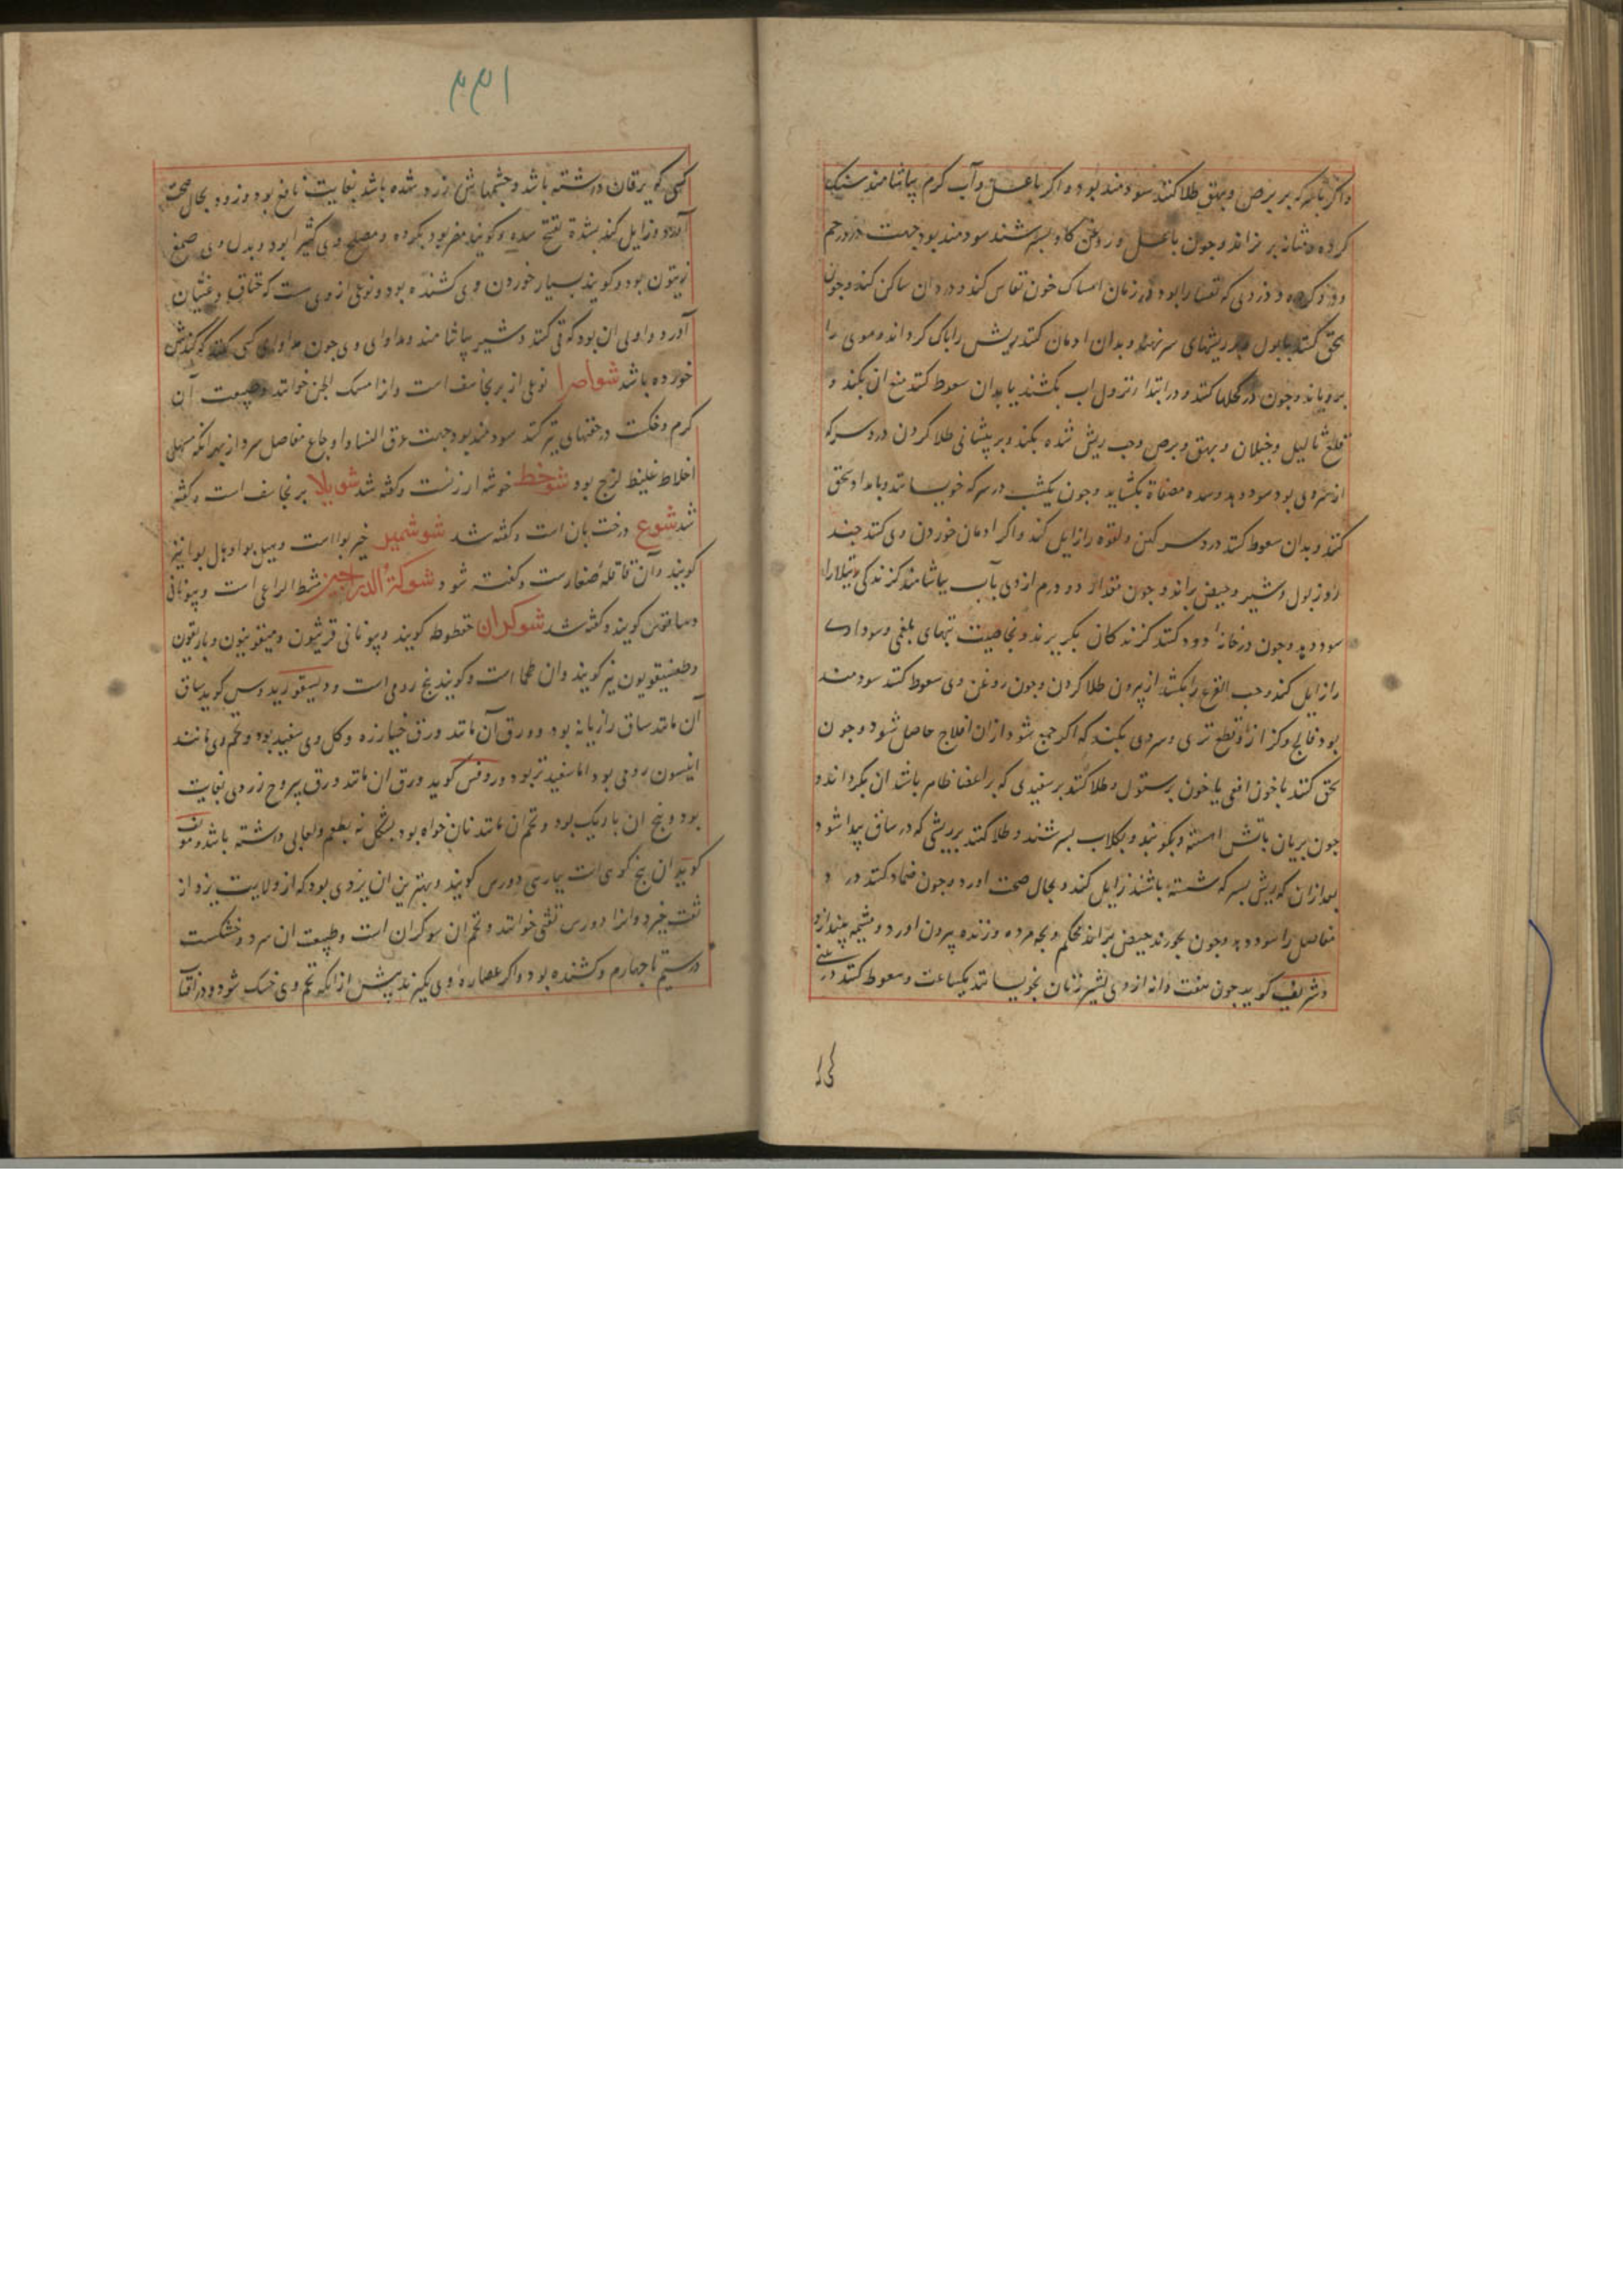 واکر با سرکه بر برص وبهق طلا کنند سودمند بود واکر با عسل وآب کرم بیاشامند سنک
کرده ومثانه بریزاند وجون با عسل وروغن کاو بسرشند سودمند بود جهت درد رحم
ودردی که نفسا را بود در زمان امساک خون نفاس کند ودرد ان ساکن کند وجون
سحق کنند با بول وبر ریشهای سر نهند وبدان ادمان کنند ریش را پاک کرداند وموی را
برویاند وجون در کحلها کنند ودر ابتدا نزول اب بکشند یا بدان سعوط کنند منع ان بکند و
قلع ثالیل وخیلان وبهق وبرص وجرب ریش شده بکند وبر پیشانی طلا کردن درد سر که
از سردی بود سود دهد وسده مصفاة بکشاید وجون یکشب در سرکه خویسانند وبامداد سحق
کنند وبدان سعوط کنند درد سر کهن ولقوه را زایل کند واکر ادمان خوردن وی کنند جند
روز بول وشیر وحیض براند وجون مقدار دو درم از وی بآب بیاشامند کزندکی رتیلا را
سود دهد وجون در خانه دود کنند کزندکان بکریزند وبخاصیت تبهای بلغمی وسوداوی
را زایل کند وحب القرع را بکشد از بیرون طلا کردن وجون روغن وی سعوط کنند سودمند
بود فالج وکزاز را وقطع تری وسردی بکند که اکر جمع شود از ان افلاج حاصل شود وجون
سحق کنند با خون افعی یا خون پرستوک وطلا کنند بر سفیدی که بر اعضا ظاهر باشد ان بکرداند و
جون بریان باتش اهسته وبکوبند وبکلاب بسرشند وطلا کنند بر ریشی که در ساق پیدا شود
بعد از ان که ریش بسرکه شسته باشند زایل کند وبحال صحت اورد وجون ضماد کنند درد
مفاصل را سود دهد وجون بخورند حیض براند محکم وبجه مرده وزنده بیرون اورد ومشیمه بیندازد
وشریف کوید جون هفت دانه از وی بشیر زنان بخویسانند یکساعت وسعوط کنند در بینی
کسی
۲۲۱
کسی که یرقان داشته باشد وجشمهایش زرد شده باشد بغایت نافع بود وزود بحال صحت
آورد وزایل کند بشدة تفتح سده وکویند مضر بود بکرده ومصلح وی کثیرا بود وبدل وی صمغ
زیتون بود وکویند بسیار خوردن وی کشنده بود ونوعی از وی ست که خناق وغثیان
آورد واولی ان بود که قی کنند وشیر بیاشامند ومداوای وی جون مداوای کسی کنند که کندش
خورده باشد شواصرا نوعی از برنجاسف است وانرا مسک الجن خوانند وطبیعت آن
کرم وخشکت در حقنهای تیز کنند سودمند بود جهت عرق النسا واوجاع مفاصل سرد از بهر انکه مسهل
اخلاط غلیظ لزج بود شوخط خوشه ارزنست وکفته شد شویلا برنجاسف است وکفته
شد شوع درخت بان است وکفته شد شوشمیر خیربوا است وهیل بوا وهال بوا نیز
کویند وآن قاقله صغارست وکفته شود شوکة الدراجین مشط الراعی است وبیونانی
دیساقوس کویند وکفته شد شوکران طحطوطه کویند وبیونانی قونیون
کویند وان طحما است وکویند بنج رومی است ودیسقوریدوس کوید ساق
آن مانند ساق رازیانه بود وورق آن مانند ورق خیارزه وکل وی سفید بود وتخم وی مانند
انیسون رومی بود اما سفیدتر بود وروفس کوید ورق ان مانند ورق یبروح زردی بغایت
بود وبیخ ان باریک بود وتخم ان مانند نانخواه بود بشکل نه بطعم ولعابی داشته باشد ومولف
کوید ان بیخ کوهی است بپارسی دورس کویند وبهترین ان یزدی بود که از ولایت یزد از
تفت خیزد وانرا دورس تفتی خوانند وتخم ان سوکران است وطبیعت ان سرد وخشکست
در سیم تا جهارم وکشنده بود واکر عصاره وی بکیرند پیش از انکه تخم وی خشک شود ودر افتاب